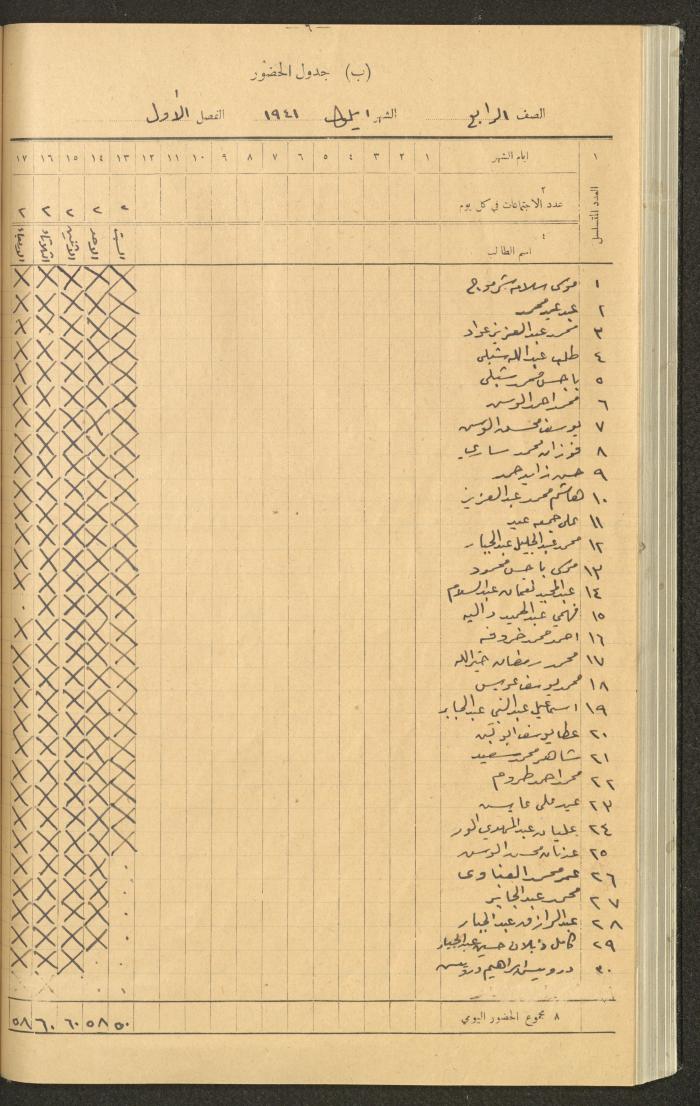 — ٦ —
(ب) جدول الحضور
الصف الرابع الشهر ايلول ١٩٤١ الفصل الأول
١ ايام الشهر ١ ٢ ٣ ٤ ٥ ٦ ٧ ٨ ٩ ١٠ ١١ ١٢ ١٣ ١٤ ١٥ ١٦ ١٧
العدد المتسلسل
٢
عدد الاجتماعات في كل يوم ٢ ٢ ٢ ٢ ٢
٤
اسم الطالب السبت الاحد الاثنين الثلاثاء الاربعاء
١ موسى سلامه
٢ عيد محمد
٣ محمد عبد العزيز عواد
٤ طلب عبد الله شبلي
٥ باجس محمد شبلي
٦ محمد احمد الويس
٧ يوسف محسن الويس
٨ فوزان محمد ساري
٩ حسن زايد حمد
١٠ هاشم محمد عبد العزيز
١١ علي جمعه عيد
١٢ محمد عبد الجليل عبد الجبار
١٣ موسى باجس محمود
١٤ عبد المجيد نعمان عبد السلام
١٥ فهمي عبد الحميد داليه
١٦ احمد محمد خروفه
١٧ محمد رمضان خير الله
١٨ محمد يوسف عويس
١٩ اسماعيل عبد النبي عبد الجابر
٢٠ عطا يوسف ابو
٢١ شاهر محمد سعيد
٢٢ محمد احمد طروم
٢٣ عيد علي عايس
٢٤ عليان عبد المهدي الور
٢٥ عدنان محسن الويس
٢٦ عمر محمد العناوي
٢٧ محمد عبد الجابر
٢٨ عبد الرازق عبد الجبار
٢٩ كامل ذيلان حسين عبد الجبار
٣٠ درويش ابراهيم درويش
٨ مجموع الحضور اليومي ٥٠ ٥٨ ٦٠ ٦٠ ٥٨